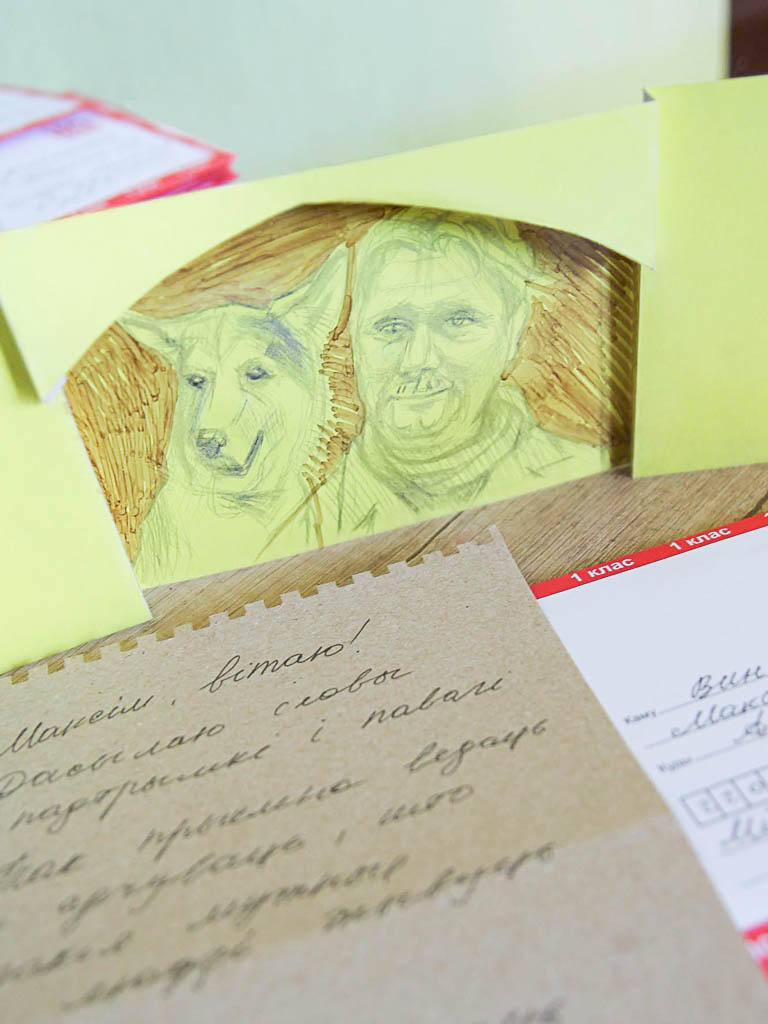 1 клас 1 клас
Максім, вітаю!
Дасылаю словы
падтрымкі і павагі
Так прыемна ведаць
адчуваць, што
такія мужныя
людзі жывуць
Каму Вин
Мак
Куды